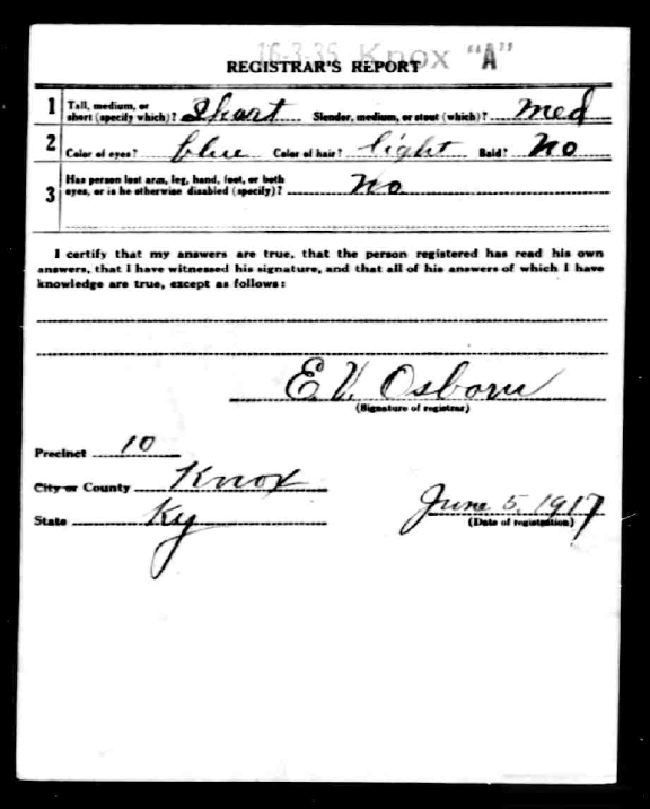 16-3-35 Knox "A"
REGISTRAR'S REPORT
1 Tall, medium, or short (specify which)? Short Slender, medium, or stout (which)? Med
2 Color of eyes? blue Color of hair? light Bald? No
3 Has person lost arm, leg, hand, foot, or both eyes, or is he otherwise disabled (specify)? No
I certify that my answers are true, that the person registered has read his own
answers, that I have witnessed his signature, and that all of his answers of which I have
knowledge are true, except as follows:
E.V. Osborn
(Signature of registrar)
Precinct 10
City or County Knox
State Ky
June 5, 1917
(Date of registration)